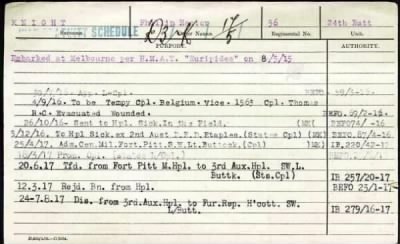 KNIGHT
56
24th Batt
SCHEDULE
Regimental No.
Unit.
PURPOSE.
AUTHORITY.
Embarked at Melbourne per H.M.A.T. "Euripides" on 8/5/15
4/9/16. To be Tempy Cpl. Belgium. Vice. 1563 Cpl. Thomas
R.C. Evacuated Wounded.
26/10/16- Sent to Hpl. Sick. In the Field. (MK)
5/12/16. To Hpl Sick. ex 2nd Aust D.B.D. Etaples. (States Cpl) (MK)
25/4/17. Adm. Cen. Mil. Fort. Pitt. S.W. Lt. Buttock. (Cpl)
20.6.17 Tfd. from Fort Pitt M.Hpl. to 3rd Aux.Hpl. SW.L.
Buttk. (Sts.Cpl) IB 257/20-17
12.3.17 Rejd. Bn. from Hpl. BEFO 23/1-17
24-7.8.17 Dis. from 3rd.Aux.Hpl. to Fur. Rep. H'cott. SW.
L/Butt. IB 279/16-17